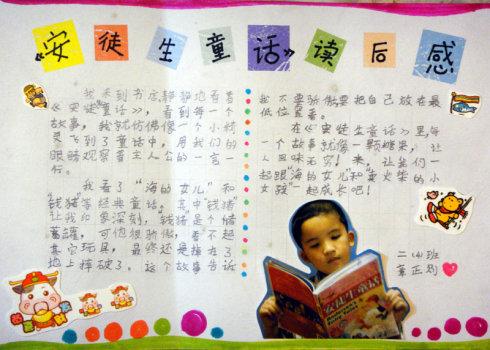 《安徒生童话》读后感
我来到书店静静地看着
《安徒生童话》，看到每一个
故事，我就仿佛像一个小精
灵飞到了童话中，用我们的
眼睛观察着主人公的一言一
行。
我看了“海的女儿”和
“钱猪”等经典童话。其中“钱猪”
让我印象深刻，“钱猪”是个储
蓄罐，可他很骄傲，看不起
其它玩具，最终还是摔在了
地上摔破了。这个故事告诉
我不要骄傲要把自己放在最
低位置看。
在《安徒生童话》里，每
一个故事就像一颗糖果，让
人回味无穷！来，让我们一
起跟“海的女儿”和“卖火柴的小
女孩”一起成长吧！
二(4)班
章正
安徒生童话